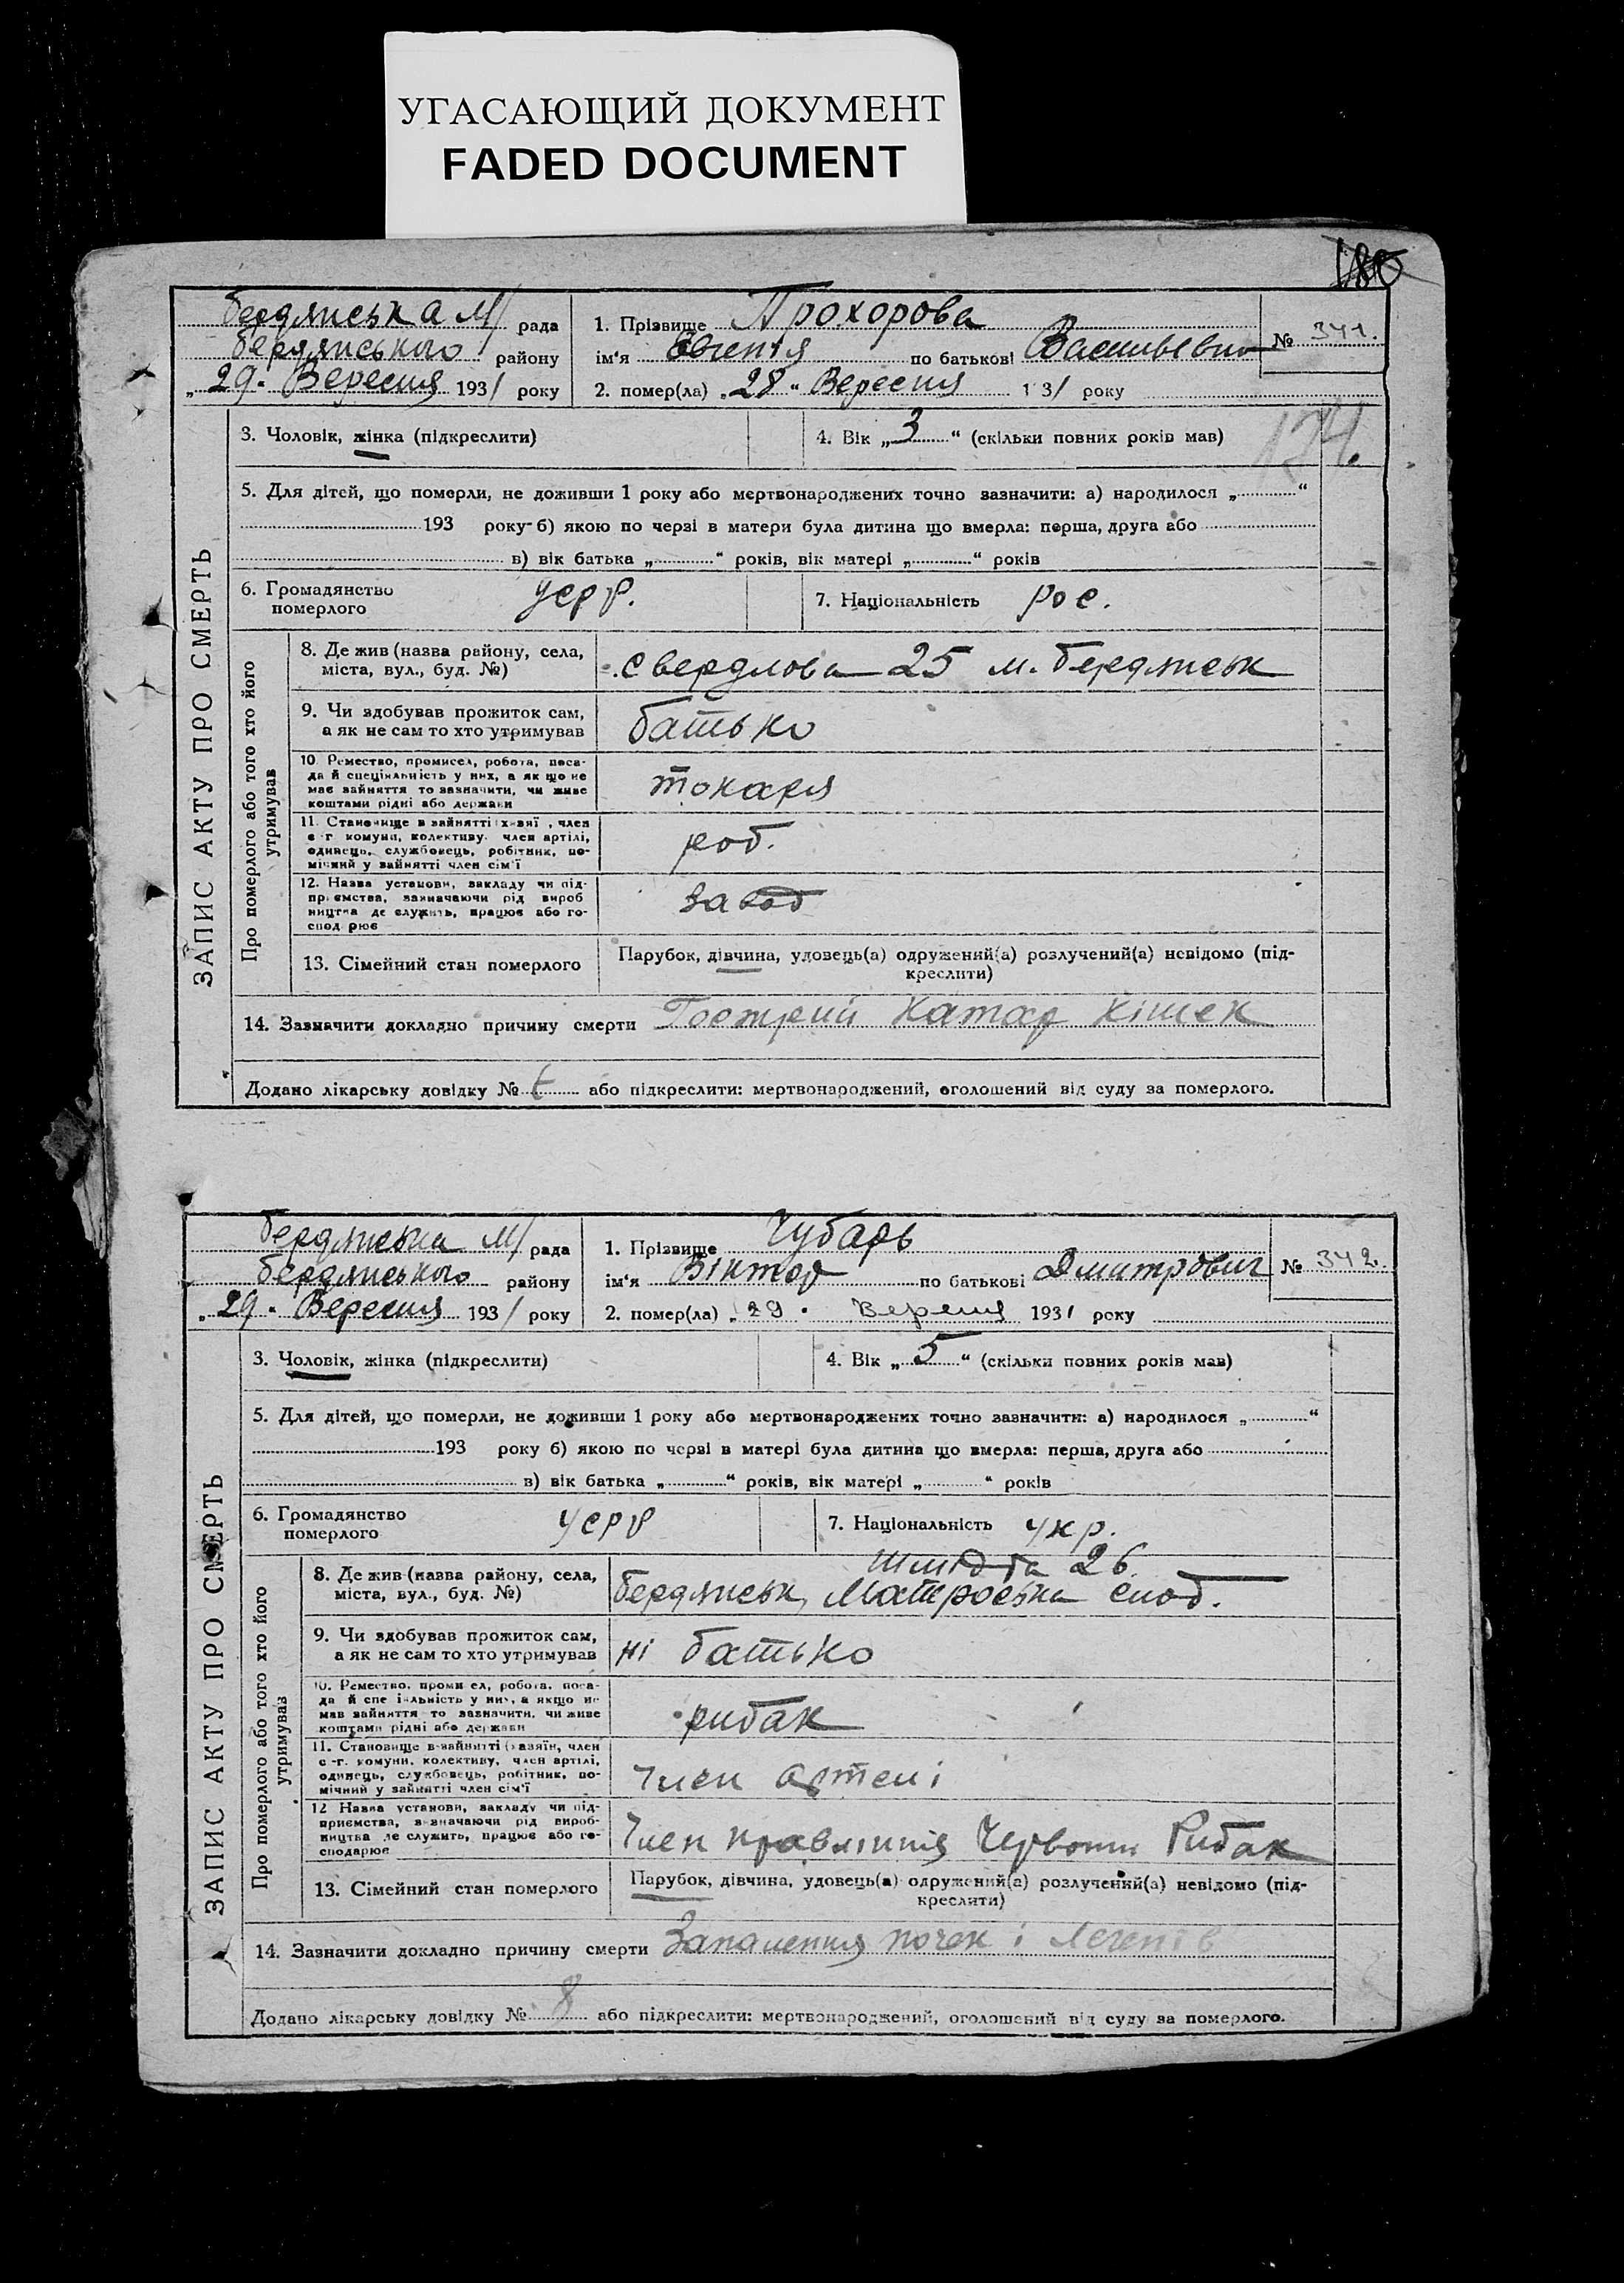 УГАСАЮЩИЙ ДОКУМЕНТ
FADED DOCUMENT
180
Бердянська М/ рада
Бердянського району
„29" Вересня 1931 року
1. Прізвище Прохорова
ім'я Євгенія по батькові Васильевна
№ 341.
2. помер(ла) „28" Вересня 131 року
3. Чоловік, жінка (підкреслити)
4. Вік „3" (скільки повних років мав)
174.
5. Для дітей, що померли, не доживши 1 року або мертвонароджених точно зазначити: а) народилося „ "
193 року б) якою по черзі в матери була дитина що вмерла: перша, друга або
в) вік батька „ " років, вік матері „ " років
6. Громадянство померлого УСРР.
7. Національність рос.
ЗАПИС АКТУ ПРО СМЕРТЬ
Про померлого або того хто його утримував
8. Де жив (назва району, села, міста, вул., буд. №) Свердлова 25 м. Бердянськ
9. Чи здобував прожиток сам, а як не сам то хто утримував батько
10. Ремество, промисел, робота, посада й спеціяльність у них, а як що не має зайняття то зазначити, чи живе коштами рідні або держави токаря
11. Становище в зайнятті (хазяї, член с-г. комуни, колективу, член артілі, одинець, службовець, робітник, помічний у зайнятті член сім'ї роб.
12. Назва установи, закладу чи підприємства, зазначаючи рід виробництва де служить, працює або господарює завод
13. Сімейний стан померлого Парубок, дівчина, удовець(а) одружений(а) розлучений(а) невідомо (підкреслити)
14. Зазначити докладно причину смерти Гострий Катар Кішек
Додано лікарську довідку № або підкреслити: мертвонароджений, оголошений від суду за померлого.
Бердянська М/ рада
Бердянського району
„29" Вересня 1931 року
1. Прізвище Чубарь
ім'я Віктор по батькові Дмитрович
№ 342.
2. помер(ла) „29" Вересня 1931 року
3. Чоловік, жінка (підкреслити)
4. Вік „5" (скільки повних років мав)
5. Для дітей, що померли, не доживши 1 року або мертвонароджених точно зазначити: а) народилося „ "
193 року б) якою по черзі в матері була дитина що вмерла: перша, друга або
в) вік батька „ " років, вік матері „ " років
6. Громадянство померлого УСРР
7. Національність укр.
ЗАПИС АКТУ ПРО СМЕРТЬ
Про померлого або того хто його утримував
Шмідта 26
8. Де жив (назва району, села, міста, вул., буд. №) Бердянськ, Матроська слоб.
9. Чи здобував прожиток сам, а як не сам то хто утримував ні батько
10. Ремество, промисел, робота, посада й спеціяльність у них, а якщо не мав зайняття то зазначити, чи живе коштами рідні або держави рибак
11. Становище в зайнятті (хазяїн, член с-г. комуни, колективу, член артілі, одинець, службовець, робітник, помічний у зайнятті член сім'ї Член артелі
12 Назва установи, закладу чи підприємства, зазначаючи рід виробництва де служить, працює або господарює Член правління Червоний Рибак
13. Сімейний стан померлого Парубок, дівчина, удовець(а) одружений(а) розлучений(а) невідомо (підкреслити)
14. Зазначити докладно причину смерти Запалення почек і легенів
Додано лікарську довідку № 8 або підкреслити: мертвонароджений, оголошений від суду за померлого.